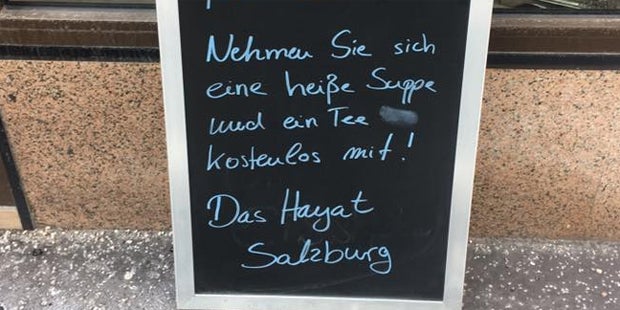 Nehmen Sie sich
eine heiße Suppe
und ein Tee
kostenlos mit!
Das Hayat
Salzburg